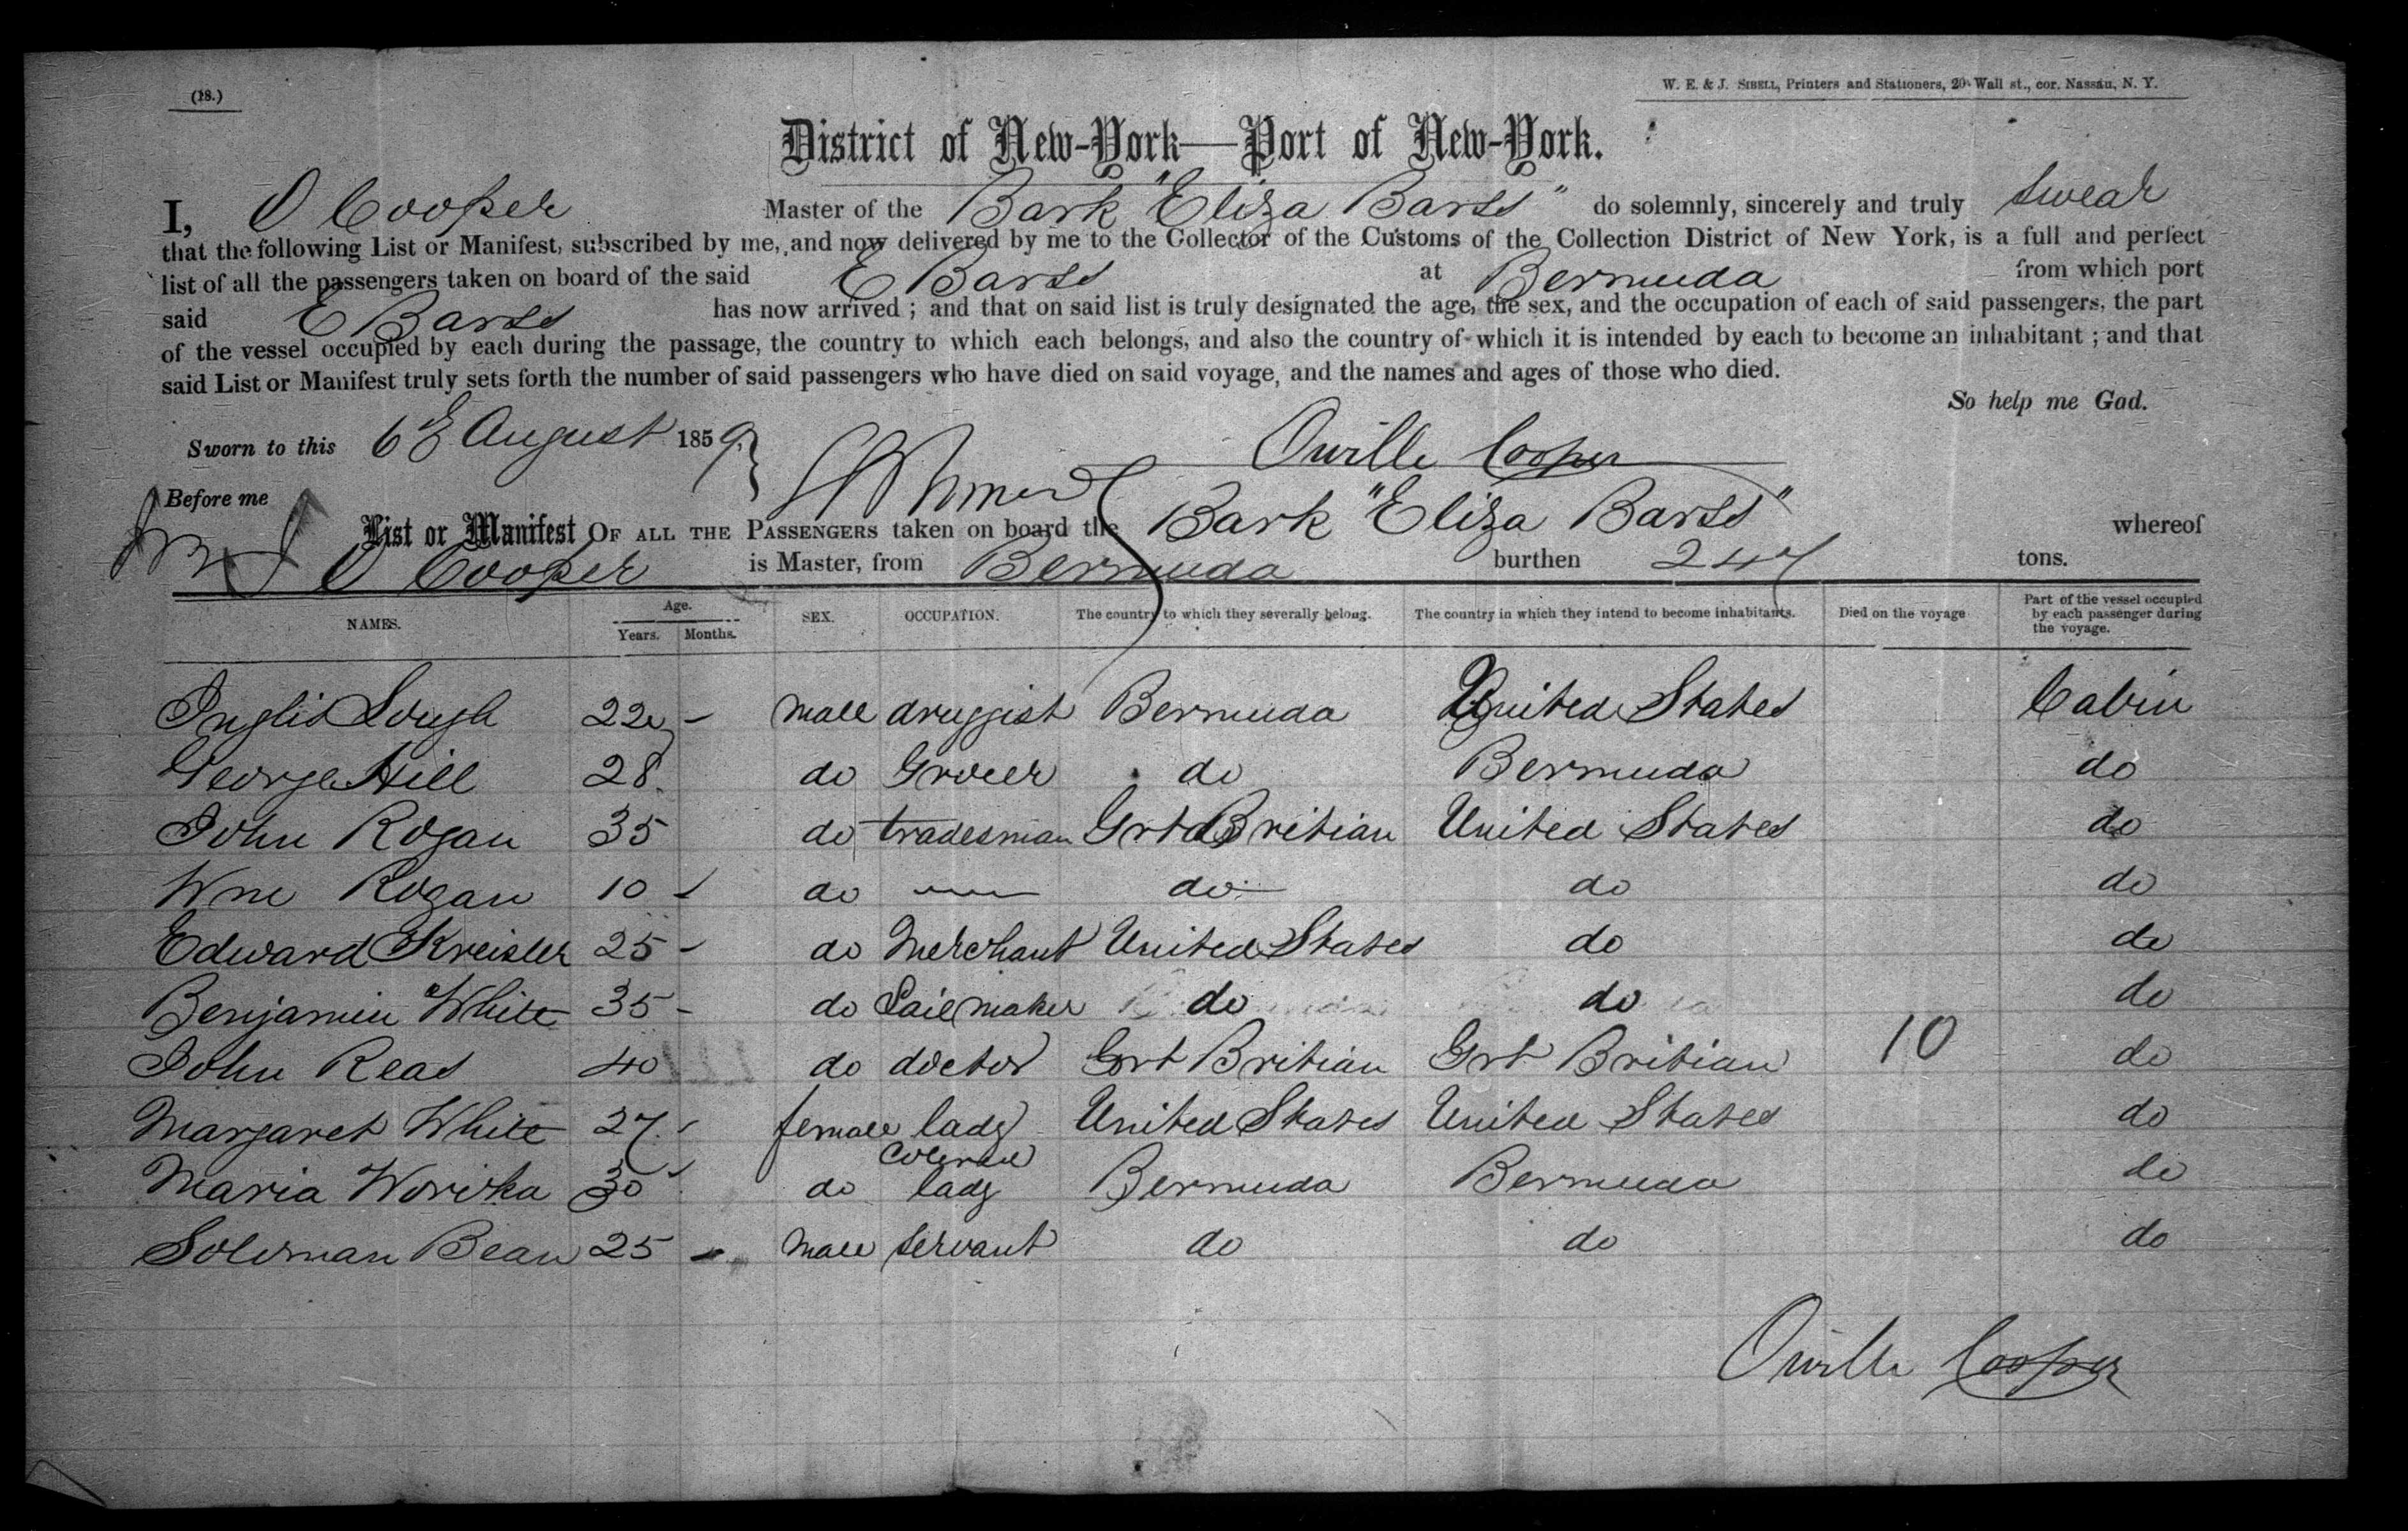 (18.)
W. E. & J. SIBELL, Printers and Stationers, 20 Wall st., cor. Nassau, N. Y.
District of New-York—Port of New-York.
I, O Cooper Master of the Bark "Eliza Barss" do solemnly, sincerely and truly swear
that the following List or Manifest, subscribed by me, and now delivered by me to the Collector of the Customs of the Collection District of New York, is a full and perfect
list of all the passengers taken on board of the said E Barss at Bermuda from which port
said E Barss has now arrived ; and that on said list is truly designated the age, the sex, and the occupation of each of said passengers, the part
of the vessel occupied by each during the passage, the country to which each belongs, and also the country of which it is intended by each to become an inhabitant ; and that
said List or Manifest truly sets forth the number of said passengers who have died on said voyage, and the names and ages of those who died.
So help me God.
Sworn to this 6 August 1859 Orville Cooper
Before me
List or Manifest OF ALL THE PASSENGERS taken on board the Bark "Eliza Barss" whereof
O Cooper is Master, from Bermuda burthen 247 tons.
NAMES. Age. Years. Months. SEX. OCCUPATION. The country to which they severally belong. The country in which they intend to become inhabitants. Died on the voyage Part of the vessel occupied by each passenger during the voyage.
Inglis Lough 22 - male druggist Bermuda United States Cabin
George Hill 28 do Grocer do Bermuda do
John Rogan 35 do tradesman Grt Britian United States do
Wm Rogan 10 do — do do do
Edward Kreisler 25 - do Merchant United States do do
Benjamin White 35 - do Sail maker do do do
John Reas 40 do doctor Grt Britian Grt Britian 10 do
Margaret White 27 female lady United States United States do
Maria 30 do colered lady Bermuda Bermuda do
Soloman Bean 25 - male servant do do do
Orville Cooper